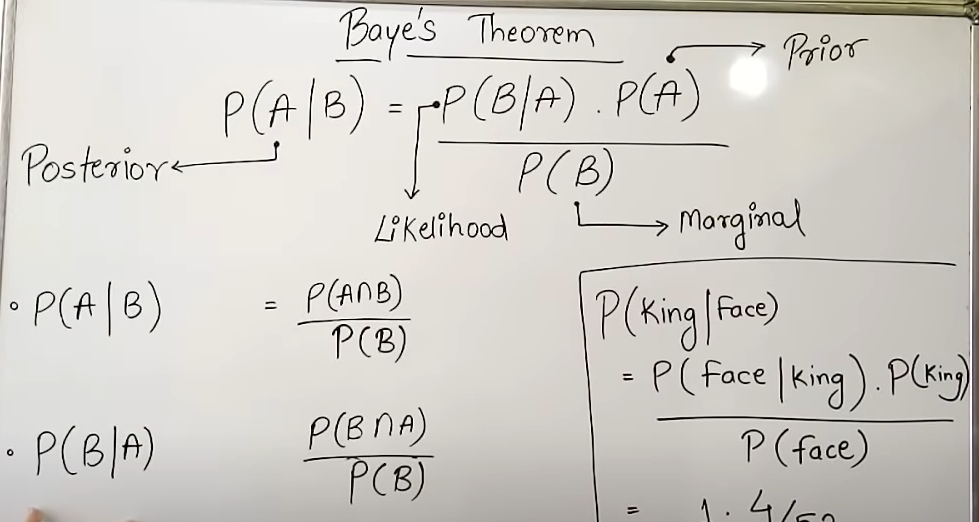 Baye's Theorem
P(A|B) = P(B|A) . P(A)
P(B)
Prior
Posterior
Likelihood
Marginal
• P(A|B) = P(A∩B)
P(B)
• P(B|A) P(B∩A)
P(B)
P(King|Face)
= P(Face|King) . P(King)
P(face)
= 1 . 4/52